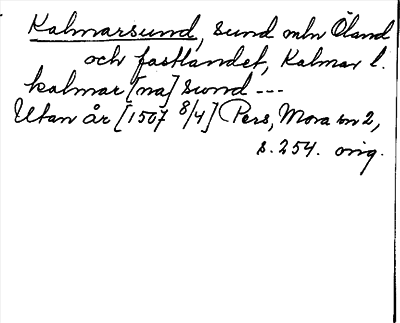 Kalmarsund, sund mln Öland
och fastlandet, Kalmar l.
kalmar [na] sund ---
Utan år [1507 8/4] Pers, Mora m 2,
s. 254. orig.